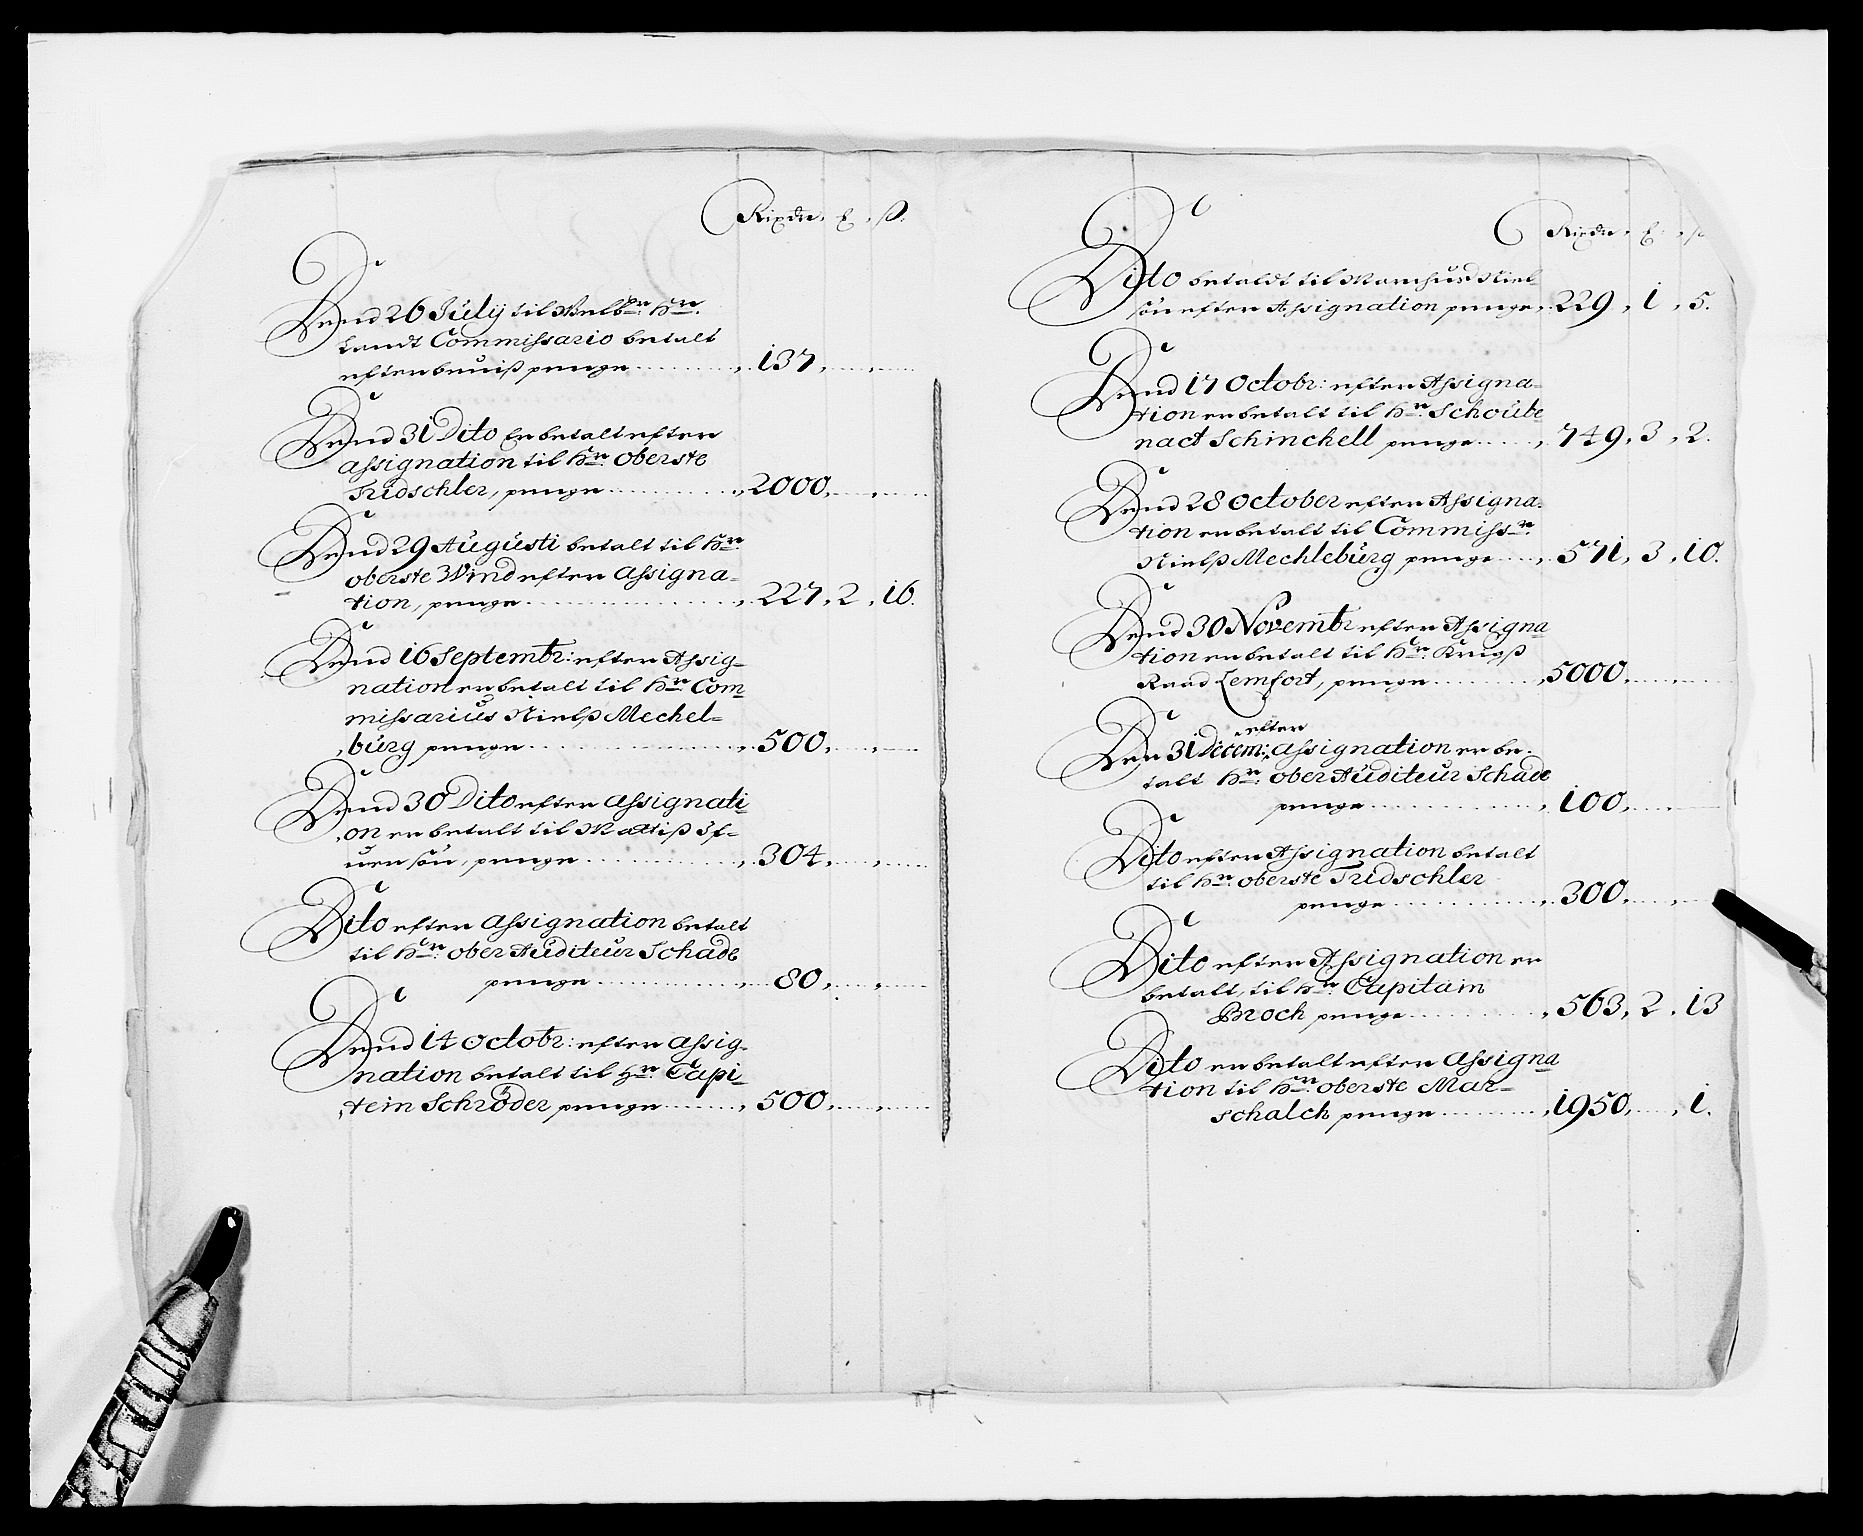 Rixdr. ξ. ß.
Dend 26 Julij til Welb: Hr:
Landt Commissario betalt
efter beuiß penge 137
Dend 31 Dito Er betalt efter
assignation til Hr: Oberste
Tridschler, penge 2000
Dend 29 Augusti betalt til Hr:
oberste Wind efter assigna=
tion, penge 227, 2, 16.
Dend 16 Septembr: efter Assig=
nation er betalt til Hr: Com=
missarius Nielß Mechel=
burg penge 500
Dend 30 Dito efter assignati
on er betalt til Mattiß If=
uersøn, penge 304
Dito efter assignation betalt
til Hr: ober Auditeur Schade
penge 80
Dend 14 Octobr: efter assig=
nation betalt til Hr: Capi=
tein Schrøder penge 500
Rixdr. ξ. ß
Dito betaldt til Niel=
søn efter Assignation penge 229, 1, 5.
Dend 17 Octobr: efter Assigna=
tion er betalt til Hr: Schoute
nact Schinckell penge 749, 3, 2.
Dend 28 October efter Assigna=
tion er betalt til Commissr:
Nielß Mechleburg penge 571, 3, 10.
Dend 30 Novembr efter Assigna
tion er betalt til Hr: Krigß
Raad Lemfort, penge 5000
Den 31 Decem: efter assignation er be=
talt Hr: ober Auditeur Schade
penge 100
Dito efter Assignation betalt
til Hr: oberste Tridschler
penge 300
Dito efter Assignation er
betalt, til Hr: Capitain
Broch penge 563, 2, 13
Dito er betalt efter assigna
tion til Hr: oberste Mar=
schalch penge 1950, 1.